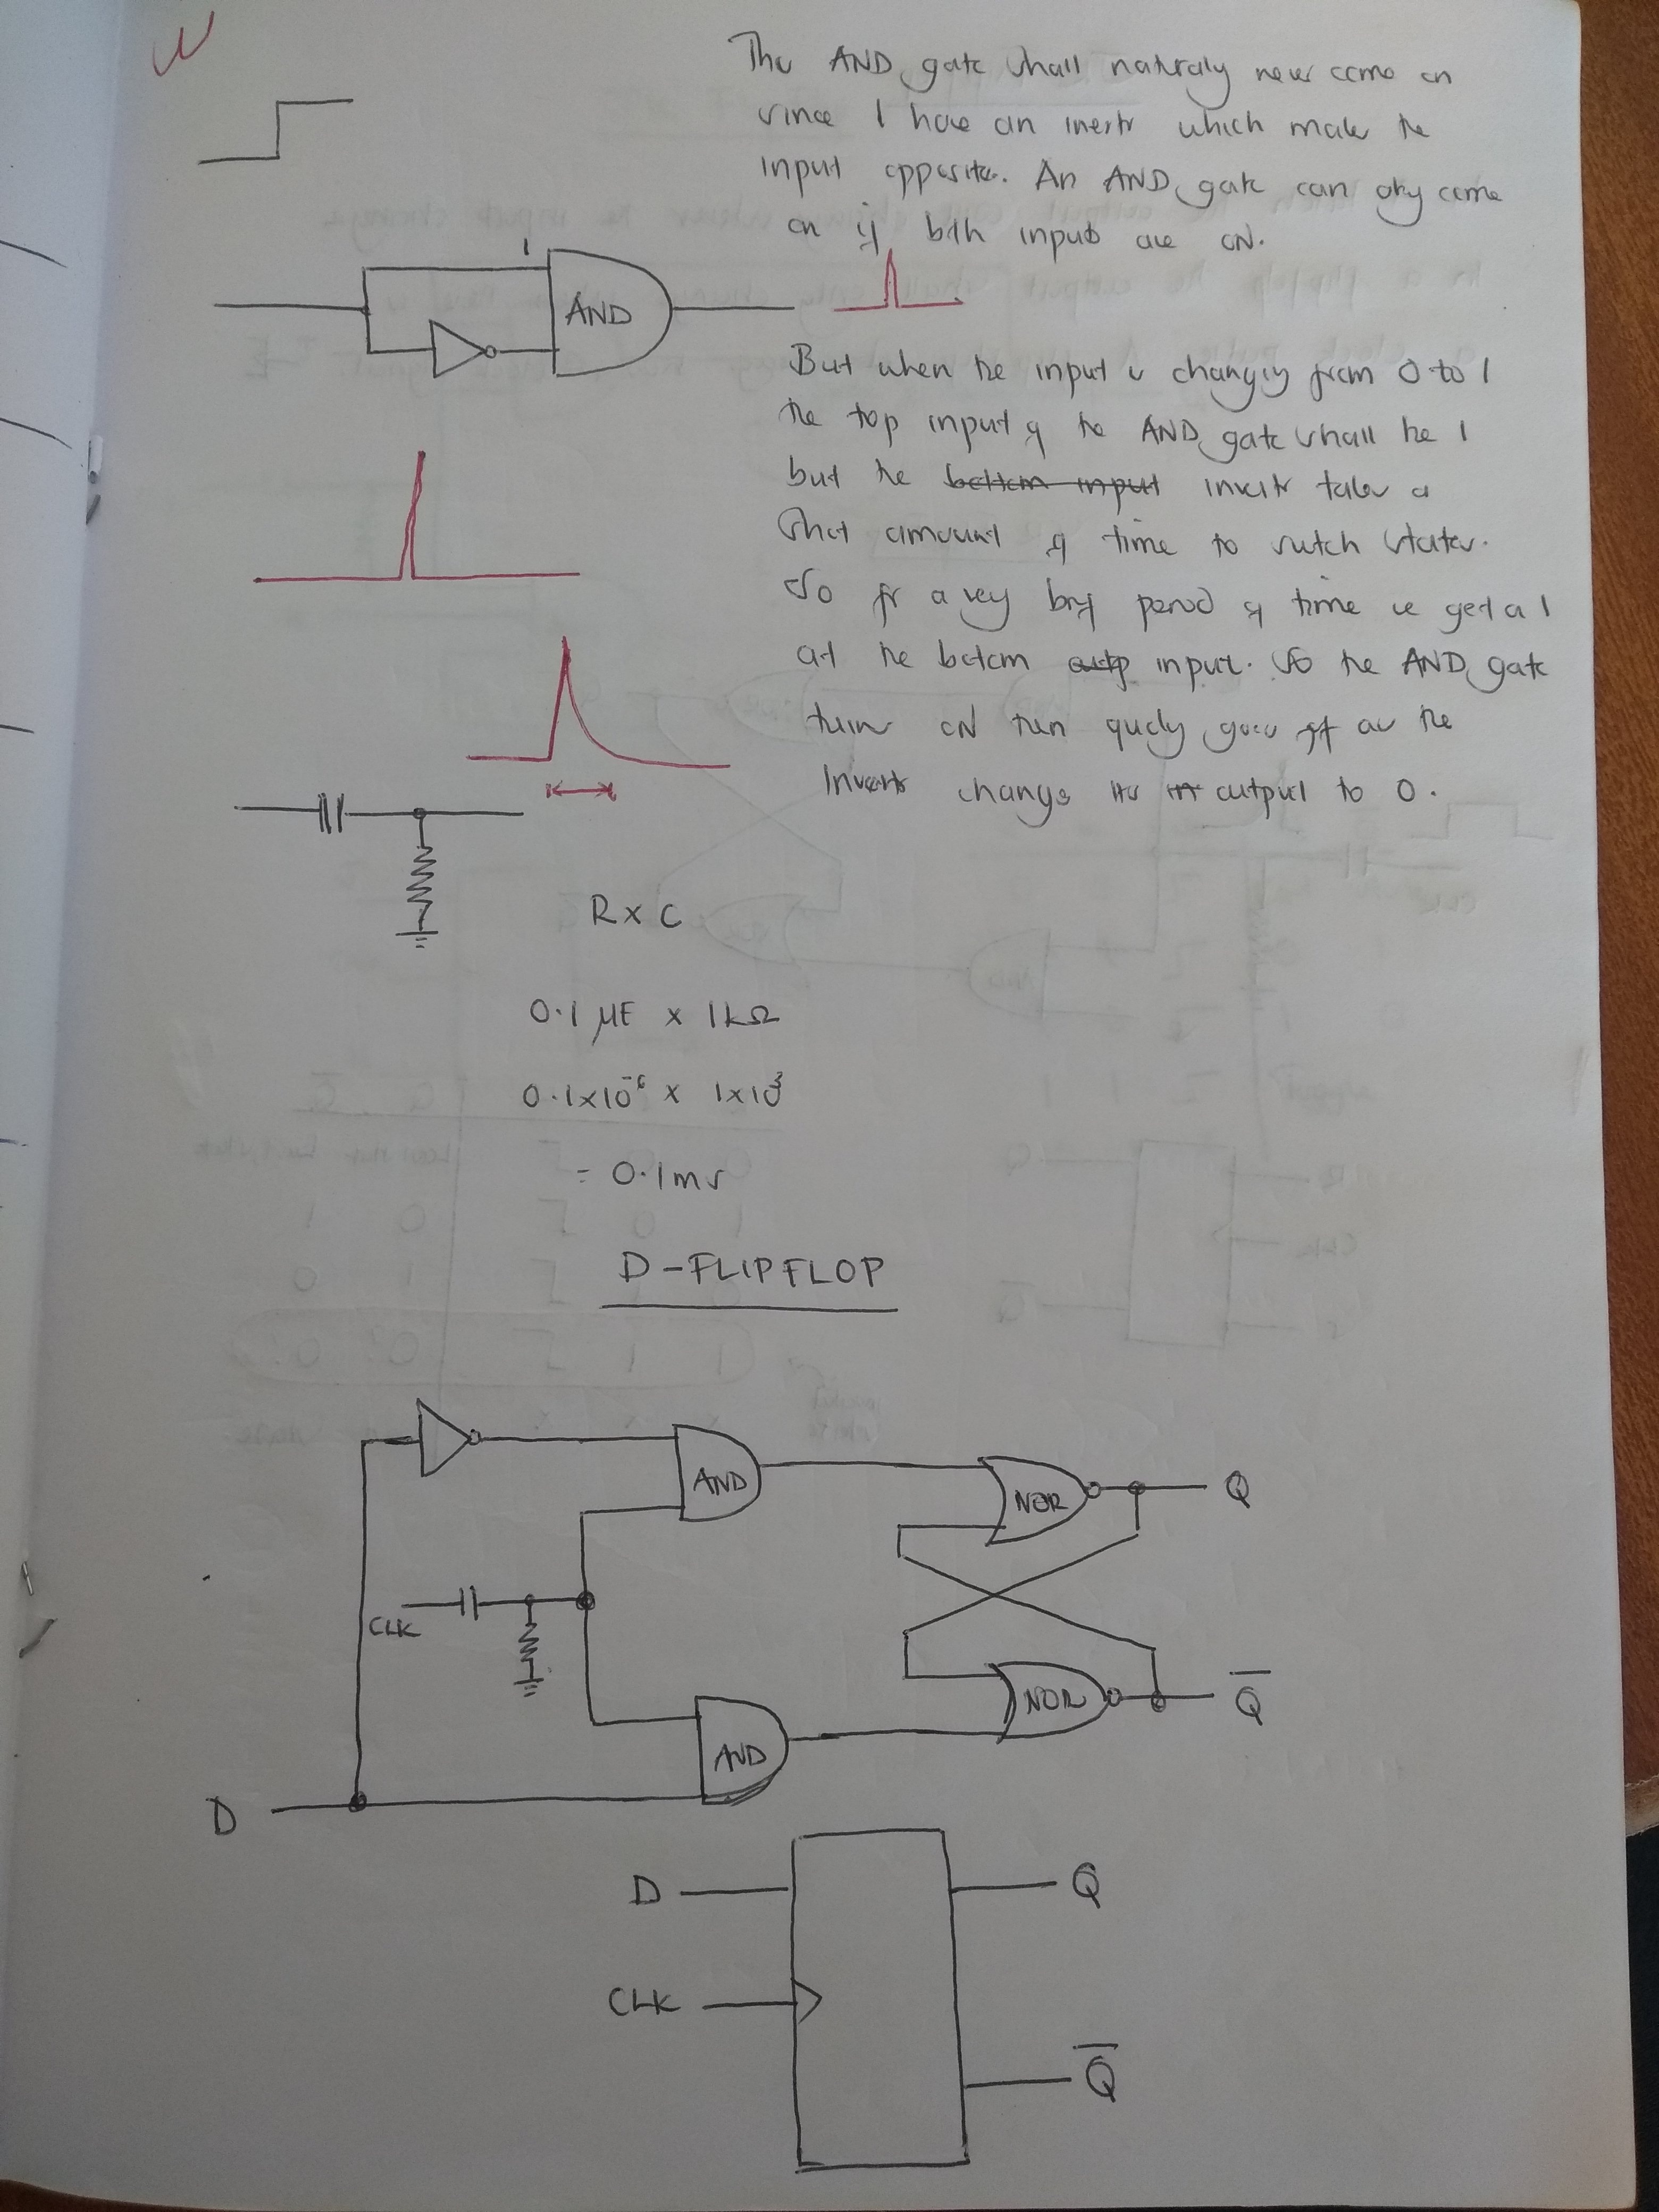 The AND gate shall naturaly never come on
since I have an inverter which makes the
input opposite. An AND gate can only come
on if both inputs are ON.
1
AND
But when the input is changing from 0 to 1
the top input of the AND gate shall be 1
but the bottom input inverter takes a
short amount of time to switch states.
So for a very brief period of time we get a 1
at the bottom outp input. So the AND gate
turns ON then quickly goes off as the
Inverter changes its output to 0.
R x C
0.1 µF x 1kΩ
0.1x10⁻⁶ x 1x10³
= 0.1ms
D-FLIPFLOP
AND
NOR
Q
CLK
NOR
Q̅
AND
D
D
Q
CLK
Q̅